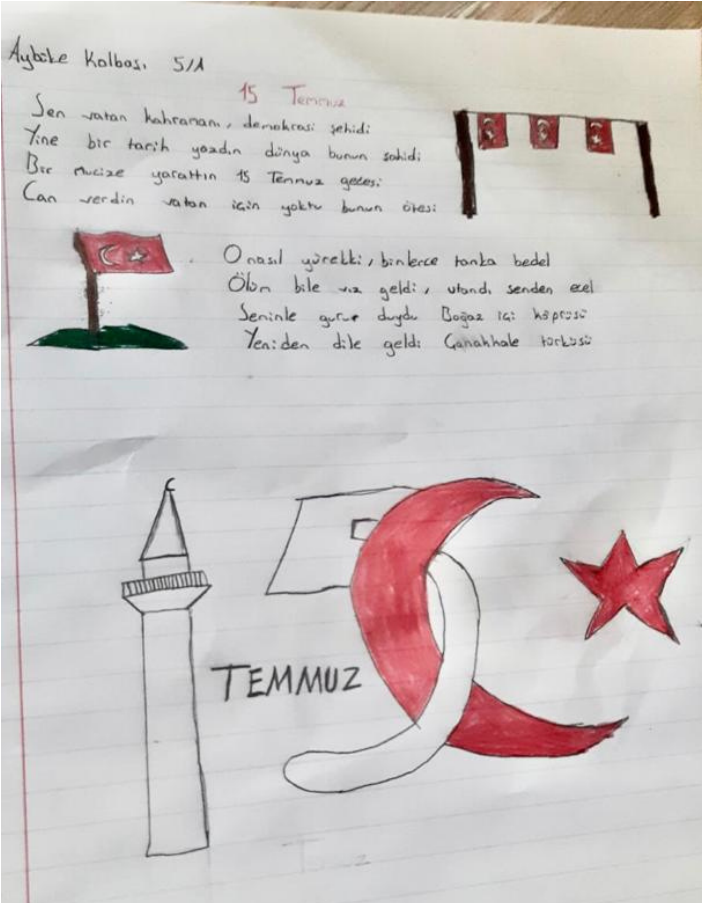 Aybüke Kolbası 5/A
15 Temmuz
Sen vatan kahramanı, demokrasi şehidi
Yine bir tarih yazdın dünya bunun şahidi
Bir mucize yarattın 15 Temmuz gecesi
Can verdin vatan için yoktu bunun ötesi
O nasıl yürekki, binlerce tanka bedel
Ölüm bile vız geldi, utandı senden ecel
Seninle gurur duydu Boğaz içi köprüsü
Yeniden dile geldi Çanakkale türküsü
15
TEMMUZ